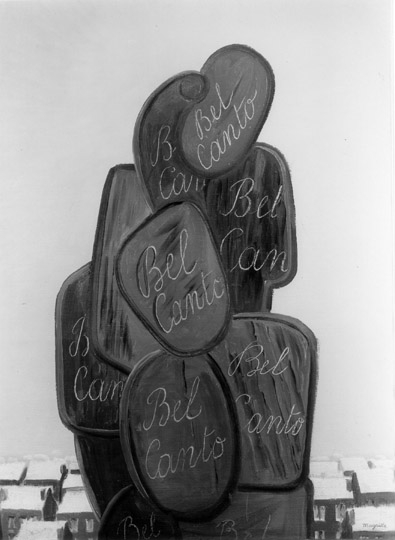 Bel
Canto
B
Can
Bel
Can
Bel
Canto
B
Can
Bel
Canto
Bel
Canto
Bel
B
Magritte